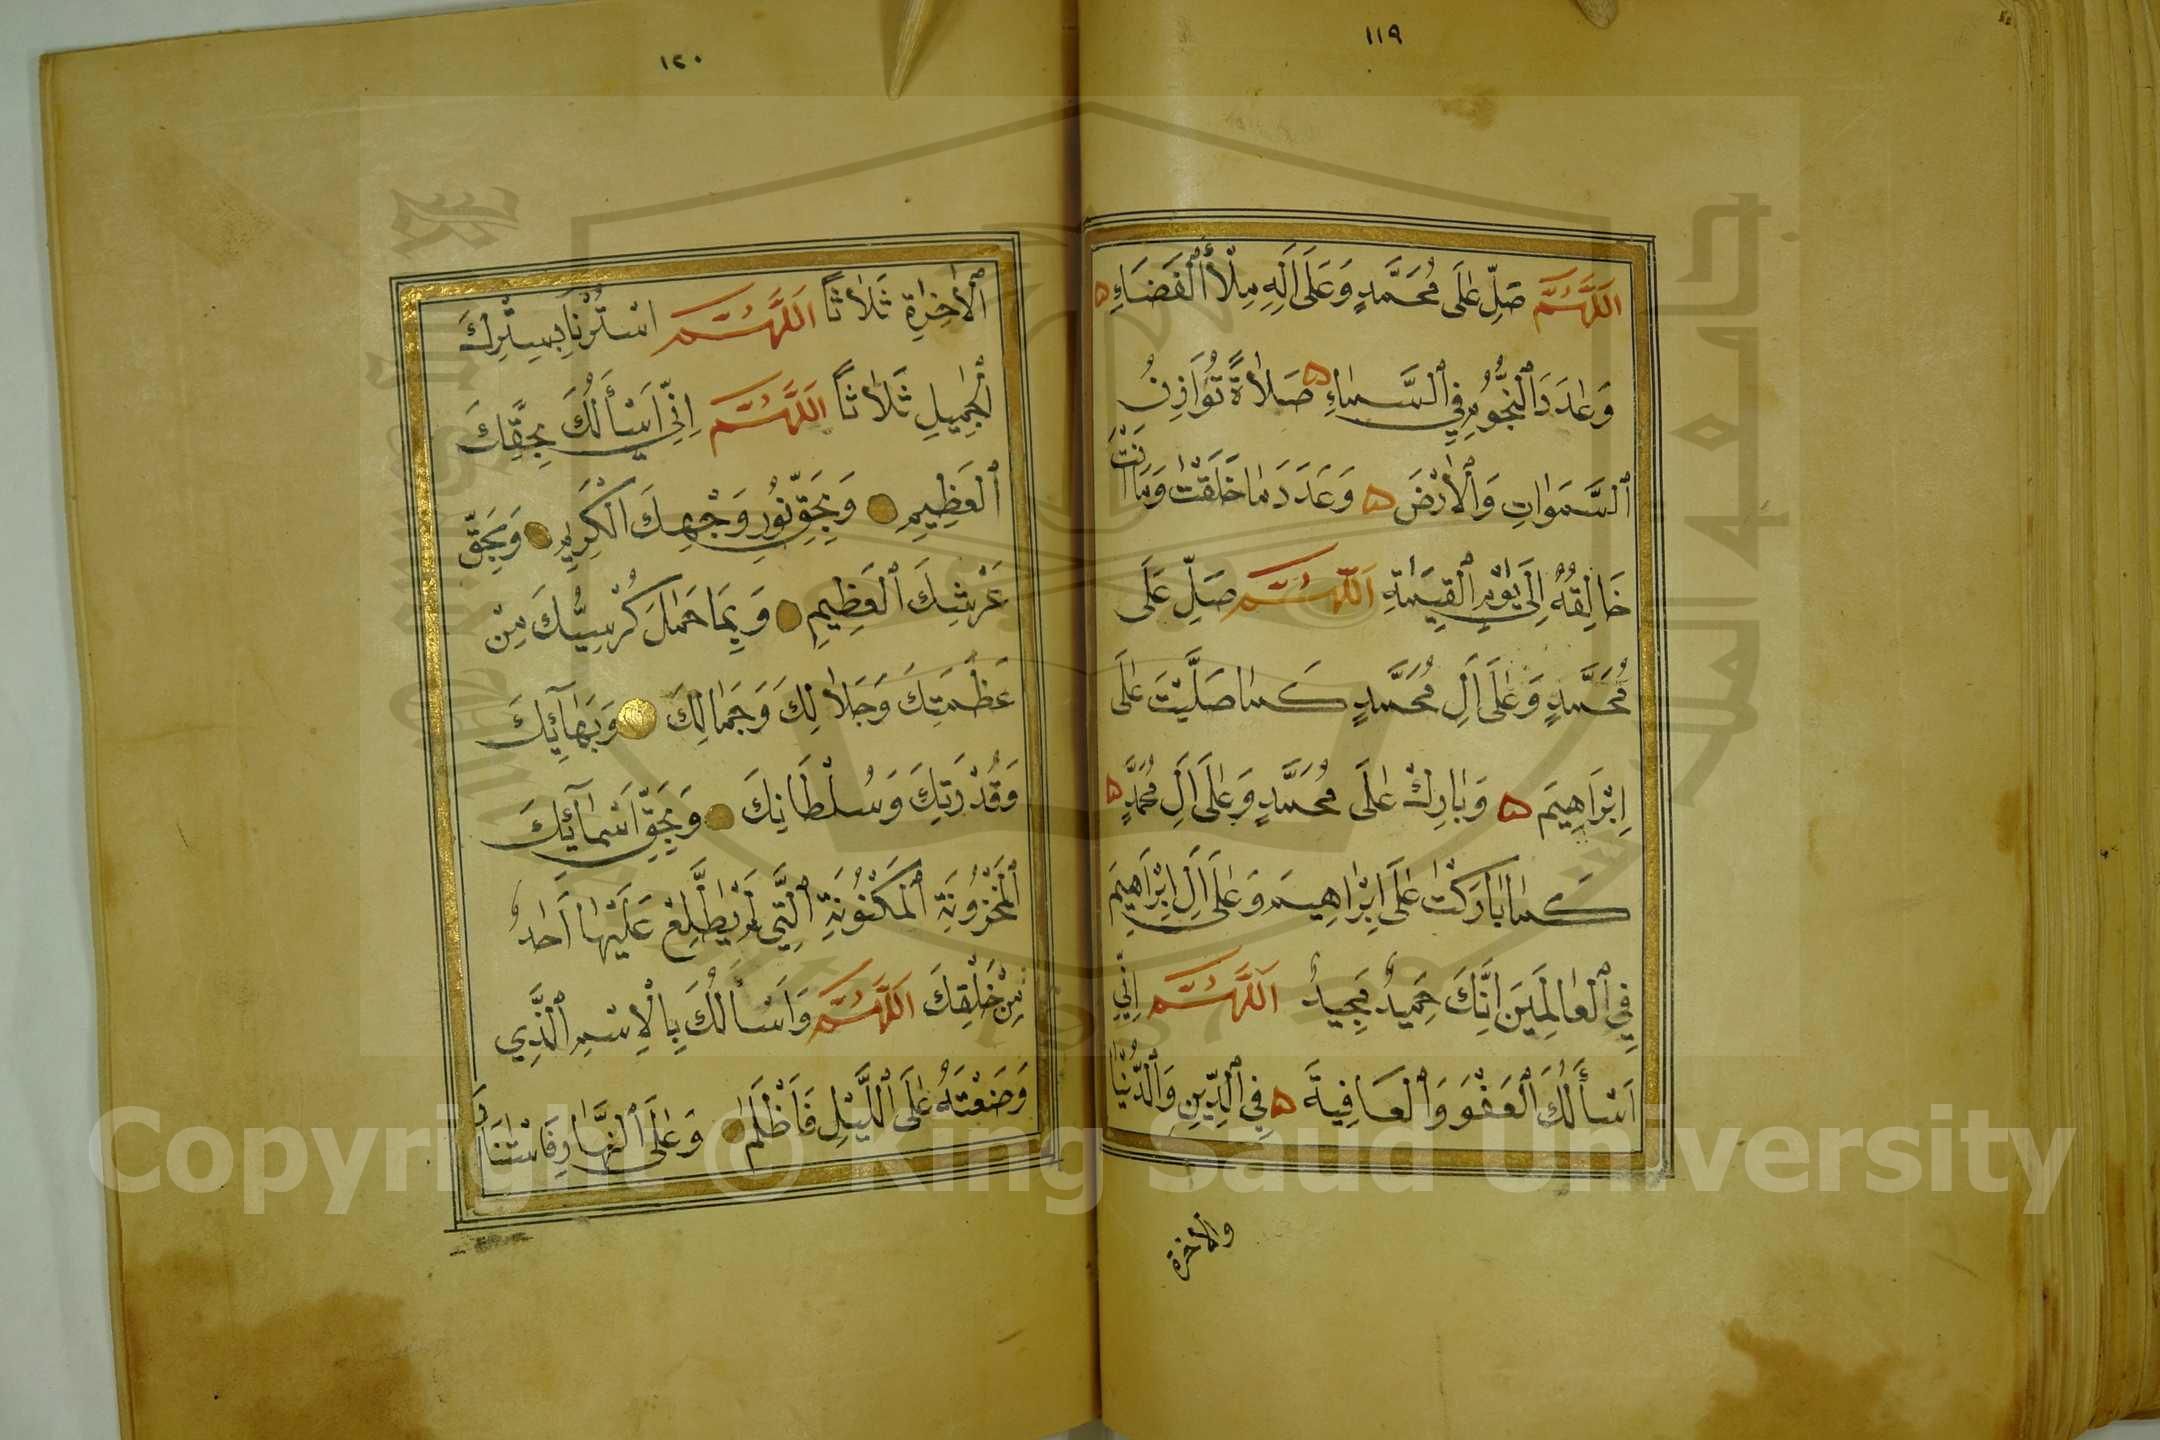 ١١٩
اَللّٰهُمَّ صَلِّ عَلَى مُحَمَّدٍ وَعَلَى اٰلِهِ مِلْأَ ٱلْفَضَاءِ
وَعَدَدَ ٱلنُّجُومِ فِي ٱلسَّمَاءِ صَلَاةً تُوَازِنُ
ٱلسَّمَوَاتِ وَٱلْأَرْضَ وَعَدَدَ مَا خَلَقْتَ وَمَا اَنْتَ
خَالِقُهُ إِلَى يَوْمِ ٱلْقِيٰمَةِ اَللّٰهُمَّ صَلِّ عَلَى
مُحَمَّدٍ وَعَلَى اٰلِ مُحَمَّدٍ كَمَا صَلَّيْتَ عَلَى
اِبْرَاهِيمَ وَبَارِكْ عَلَى مُحَمَّدٍ وَعَلَى اٰلِ مُحَمَّدٍ
كَمَا بَارَكْتَ عَلَى اِبْرَاهِيمَ وَعَلَى اٰلِ اِبْرَاهِيمَ
فِي ٱلْعَالَمِينَ اِنَّكَ حَمِيدٌ مَجِيدٌ اَللّٰهُمَّ اِنِّي
اَسْأَلُكَ ٱلْعَفْوَ وَٱلْعَافِيَةَ فِي ٱلدِّينِ وَٱلدُّنْيَا
والاخرة
١٢٠
ٱلْأٰخِرَةِ ثَلَاثًا اَللّٰهُمَّ اسْتُرْنَا بِسِتْرِكَ
ٱلْجَمِيلِ ثَلَاثًا اَللّٰهُمَّ اِنِّي اَسْأَلُكَ بِحَقِّكَ
ٱلْعَظِيمِ وَبِحَقِّ نُورِ وَجْهِكَ الْكَرِيمِ وَبِحَقِّ
عَرْشِكَ ٱلْعَظِيمِ وَبِمَا حَمَلَ كُرْسِيُّكَ مِنْ
عَظَمَتِكَ وَجَلَالِكَ وَجَمَالِكَ وَبَهَائِكَ
وَقُدْرَتِكَ وَسُلْطَانِكَ وَبِحَقِّ اَسْمَائِكَ
ٱلْمَخْزُونَةِ ٱلْمَكْنُونَةِ ٱلَّتِي لَمْ يَطَّلِعْ عَلَيْهَا اَحَدٌ
مِنْ خَلْقِكَ اَللّٰهُمَّ وَاَسْأَلُكَ بِالْاِسْمِ ٱلَّذِي
وَضَعْتَهُ عَلَى ٱللَّيْلِ فَاَظْلَمَ وَعَلَى ٱلنَّهَارِ فَاسْتَنَارَ
Copyright © King Saud University